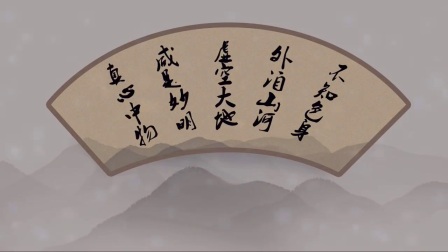 不知色身
外洎山河
虚空大地
咸是妙明
真心中物